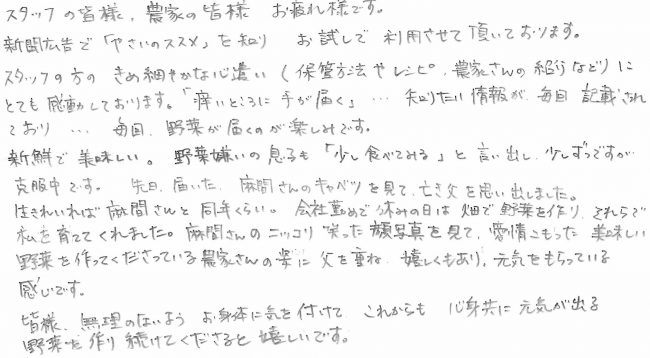 スタッフの皆様、農家の皆様 お疲れ様です。
新聞広告で「やさいのススメ」を知り お試しで利用させて頂いております。
スタッフの方の きめ細やかな心遣い(保管方法やレシピ、農家さんの紹介など)に
とても感動しております。「痒いところに手が届く」… 知りたい情報が、毎回 記載され
ており … 毎回、野菜が届くのが楽しみです。
新鮮で美味しい。 野菜嫌いの息子も「少し食べてみる」と言い出し、少しずつですが
克服中です。 先日、届いた、麻間さんのキャベツを見て、亡き父を思い出しました。
生きれいれば麻間さんと同年くらい。会社勤めで休みの日は畑で野菜を作り、それらで
私を育ててくれました。麻間さんのニッコリ笑った顔写真を見て、愛情こもった美味しい
野菜を作ってくださっている農家さんの姿に父を重ね、嬉しくもあり、元気をもらっている
感じです。
皆様、無理のないよう お身体に気を付けて、これからも 心身共に元気が出る
野菜を作り続けてくださると嬉しいです。